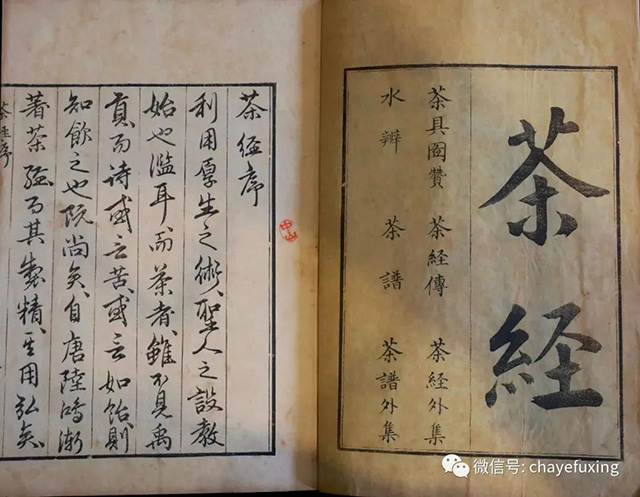 茶経
茶具圖贊 茶経傳 茶経外集
水辨 茶譜 茶譜外集
中山
茶経序
利用厚生之術聖人之設教
始也濫耳而茶者雖不見禹
貢而詩或言苦或言如飴則
知飲之也既尚矣自唐陸鴻漸
著茶経而其製精其用弘矣
茶経序
微信号: chayefuxing